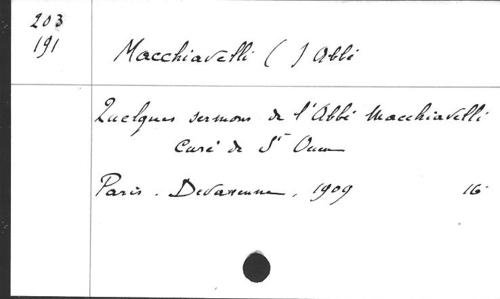 203
191
Macchiavelli ( ) Abbé
Quelques sermons de l'Abbé Macchiavelli
Curé de St Ouen
Paris. Devarenne, 1909 16